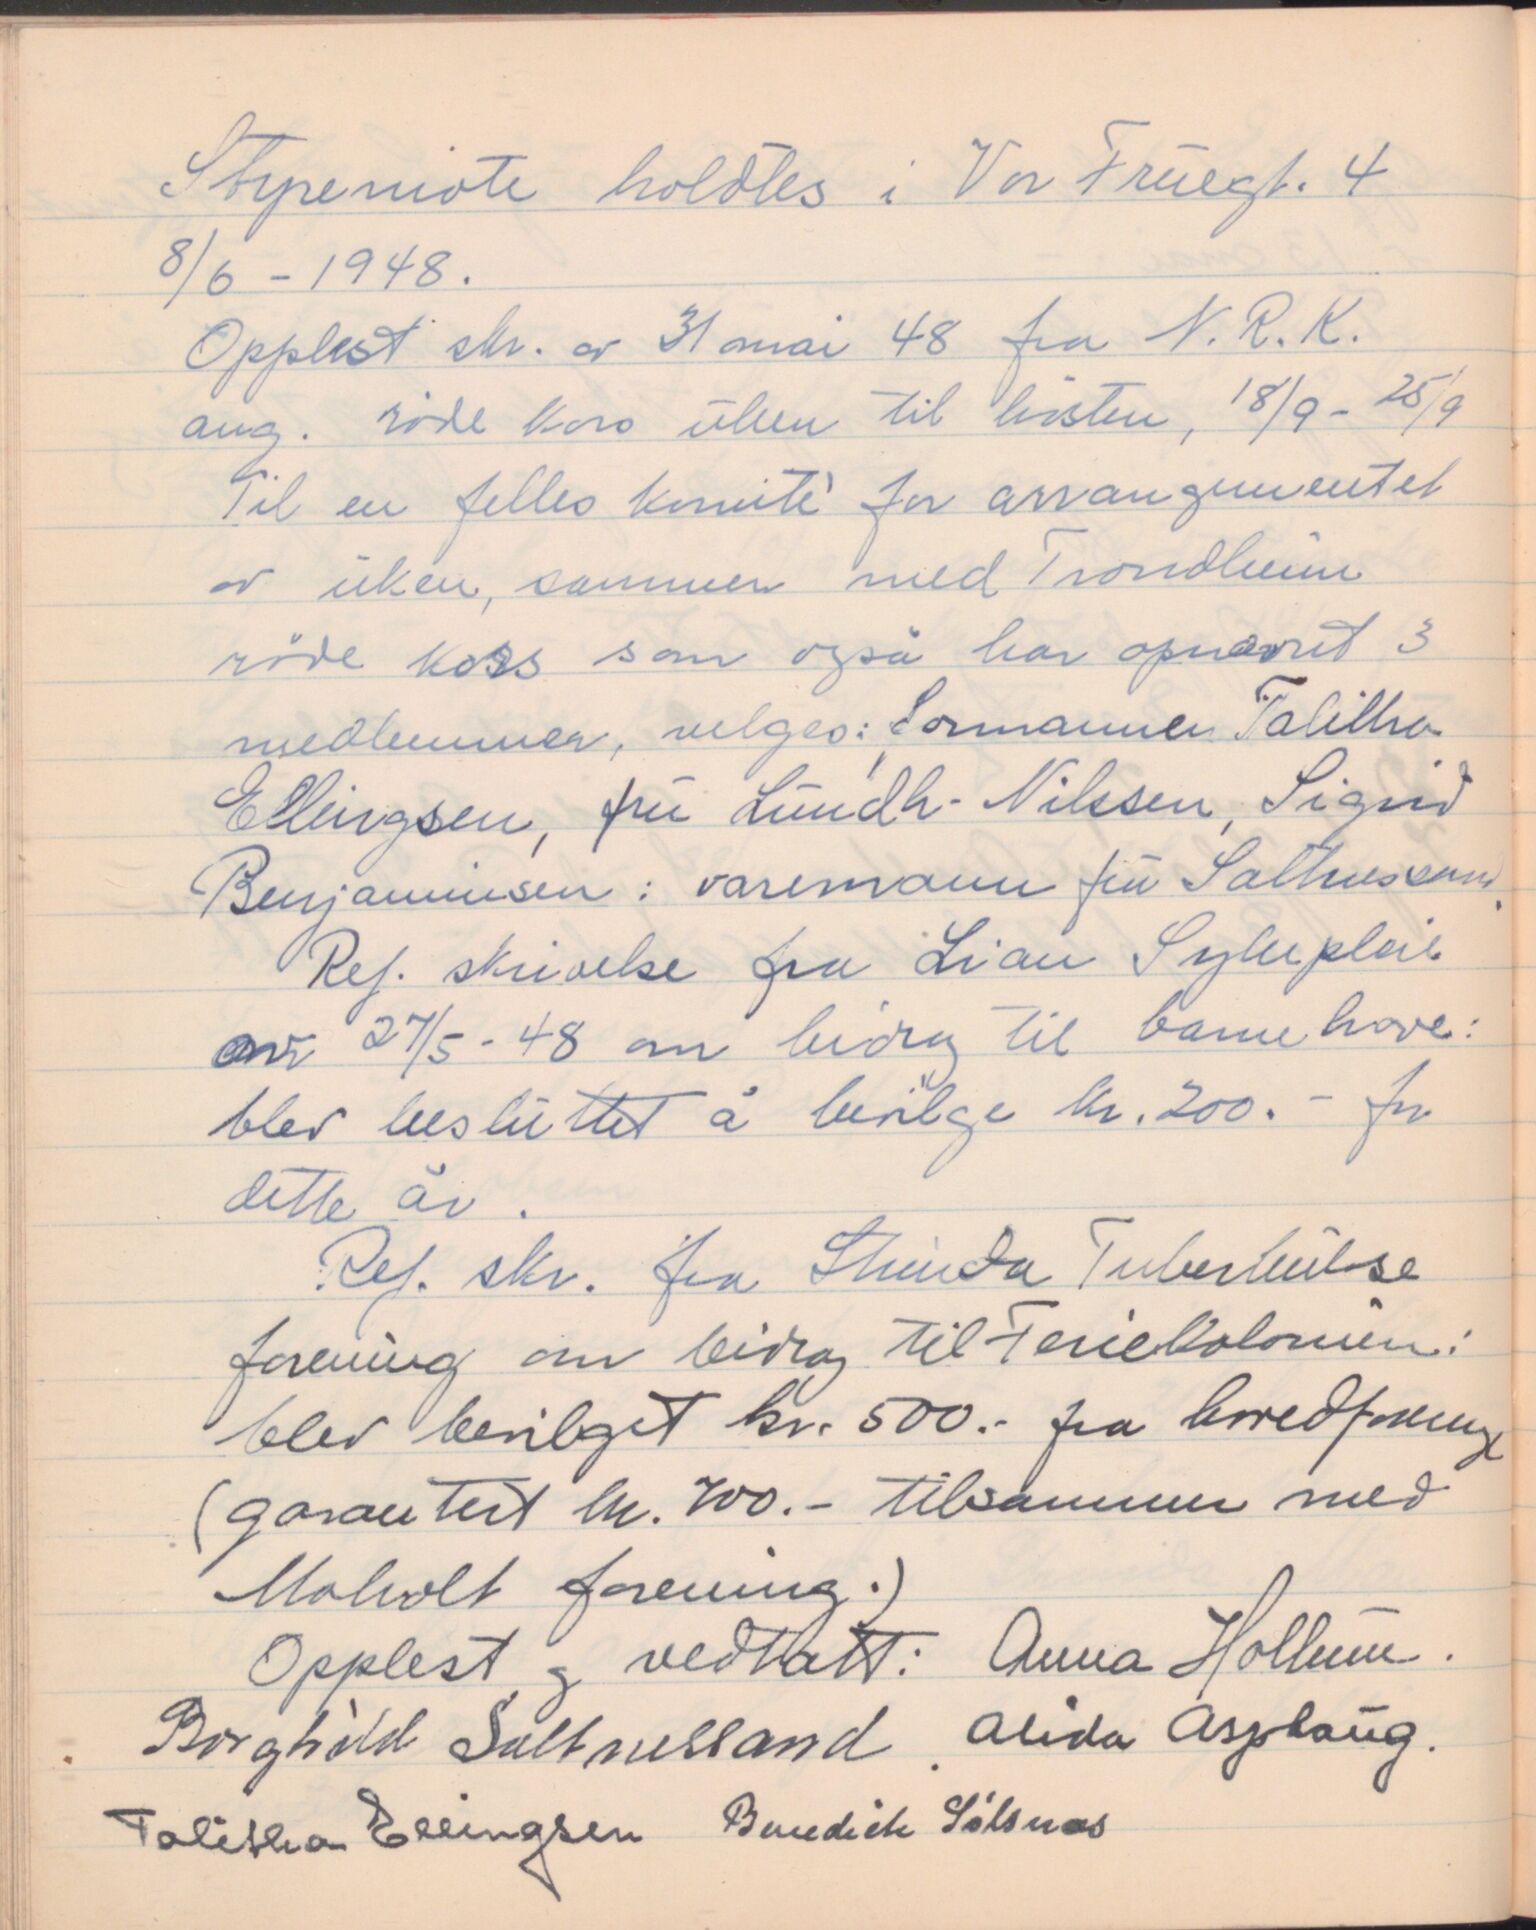 Styremöte holdtes i Vor Fruegt. 4
8/6 - 1948.
Opplest skr. av 31 mai 48 fra N. R. K.
ang. röde kors uken til hösten, 18/9 - 25/9
Til en felles komité for arrangementet
av uken, sammen med Trondheim
röde kors som også har opnevnt 3
medlemmer, velges: Formannen Talitha
Ellingsen, fru Lundh-Nilssen, Sigrid
Benjaminsen: varemann fru Saltnessand.
Ref. skrivelse fra Lian Sykepleie
av 27/5 - 48 om bidrag til barnehave:
blev besluttet å bevilge kr. 200.- for
dette år.
Ref. skr. fra Strinda Tuberkulose
forening om bidrag til Feriekolonien:
blev bevilget kr. 500.- fra hovedforening
(garantert kr. 700.- tilsammen med
Moholt forening.)
Opplest og vedtatt: Anna Hollum.
Borghild Saltnessand. Alida Asphaug.
Talitha Ellingsen Benedicte Sölsnes